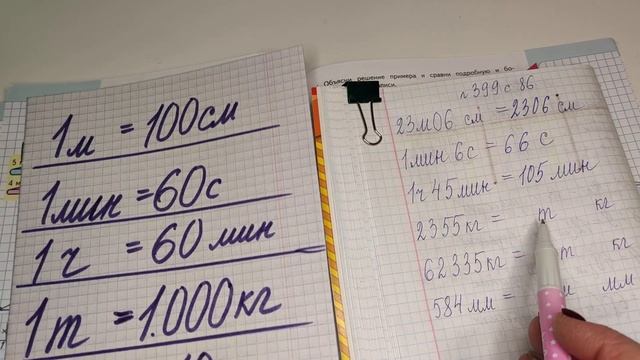 1м = 100см
1мин = 60с
1ч = 60мин
1т = 1.000кг
10
Объясни решение примера и сравни подробную и бо-
писи.
399 с 86
23м06 см = 2306 см
1мин 6с = 66 с
1ч 45мин = 105 мин
2355кг = т кг
62335кг = т кг
584 мм = м мм
5
4 м